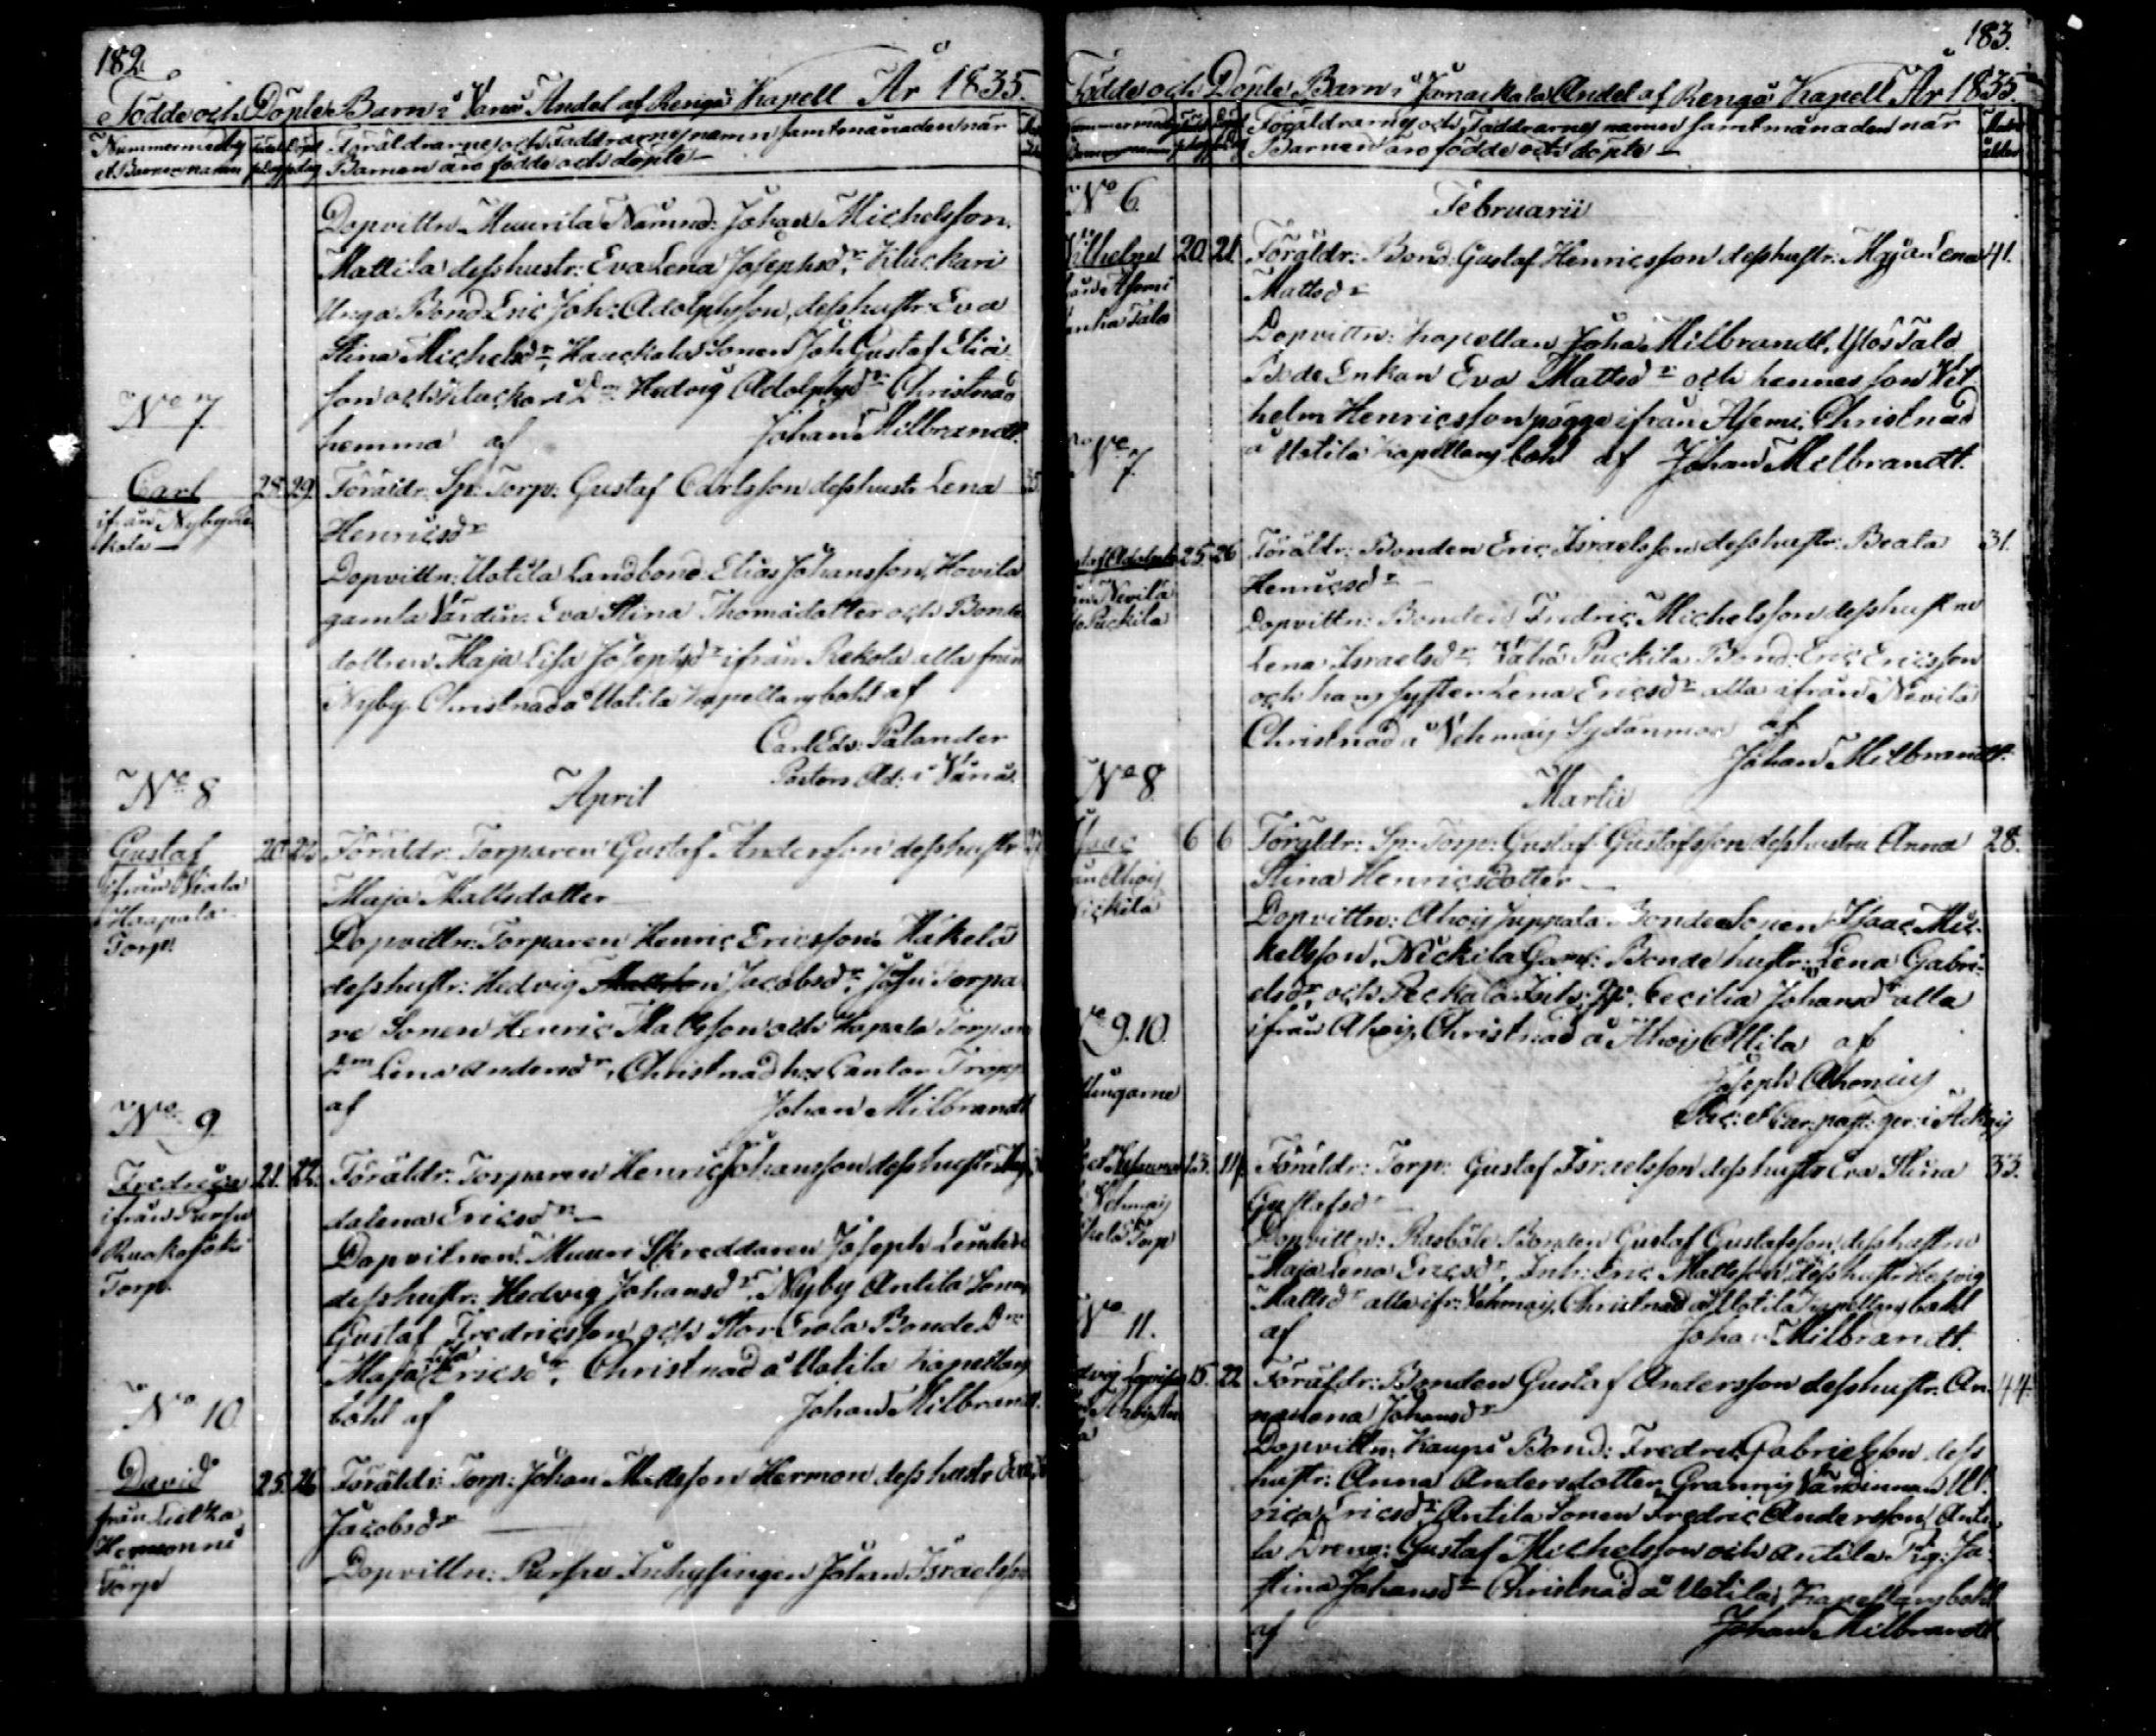 182
Födde och Döpte Barn i Vanå Andel af Rengo Kapell År 1835.
Föräldrarnes och Faddrarnes namn samt månaden när
Barnen äro födde och döpte
Dopvittn. Muurila Nämnd: Johan Michelsson
Mattila dess hustr: Eva Lena Josephsdr, Kluckari
Unga Bond. Eric Joh: Adolphsson, dess hustr. Eva
Stina Michelsdr, Hauckala Sonen Joh Gustaf
son och Kluckari Dm Hedvig Adolphsdr Christnad
hemma af Johan Milbrandt.
No 7
Carl 28 29 Föräldr. Sp: Torp: Gustaf Carlsson dess hustr Lena 35
ifrån Nyby
Henricsdr
Dopvittn: Uotila Landbond: Elias Johansson, Hovila
gamla Värdin: Eva Stina Thomädotter och Bonde
dottren Maja Lisa Josephsdr ifrån Rekola alla från
Nyby. Christnad å Uotila Kapellans bohl af
Carl Edv: Palander
Pastors Ad: i Vånå.
No 8
April
Gustaf 20 22 Föräldr. Torparen Gustaf Andersson dess hustr
ifrån
Haapala
Torp
Maja Mattsdotter
Dopvittn: Torparen Henric Ericsson Mäkelä
dess hustr: Hedvig Jacobsdr, Torpa
re Sonen Henric Mattsson och Hapala Torpare
Dm Lena Andersdr, Christnad hos Cantor
af Johan Milbrandt
No 9.
Fredrica 21. 22. Föräldr. Torparen Henric Johansson dess hustr Mag
ifrån Pursu
Ruokojoki
Torp
dalena Ericsdr
Dopvitnen: Muuri Skreddaren Joseph
dess hustr: Hedvig Johansdr, Nyby Antila Sonen
Gustaf Fredricsson och Stor Erola Bonde Dm
Maja Lisa Ericsdr, Christnad å Uotila Kapellans
bohl af Johan Milbrandt.
No 10
David 25 26 Föräldr: Torp: Johan Mattsson Hermon dess hustr Eva
från
Hermonni
Torp
Jacobsdr
Dopvittn: Pursu Inhysingen Johan Israelsson
183.
Födde och Döpte Barn i Janackala Andel af Rengo Kapell År 1835.
Föräldrarnes och Faddrarnes namn samt månaden när
Barnen äro födde och döpte
Moder
ålder
No 6.
Februarii
Vilhelm 20 21 Föräldr: Bond: Gustaf Henricsson dess hustr: Maja Lena 41.
Mattsdr
Dopvittn: Kapellan Joha Milbrandt, Ylös Talo
Bonde Enkan Eva Mattsdr och hennes son Vil
helm Henricsson ifrån Asemi, Christnad
å Uotila Kapellans bohl af Johan Milbrandt.
No 7.
25 26 Föräldr: Bonden Eric Israelsson dess hustr: Beata 31.
Nevilä
Puckila
Henricsdr
Dopvittn: Bonden Fredric Michelsson dess hustru
Lena Israelsdr, Vähä Puckila Bond: Eric Ericsson
och hans syster Lena Ericsdr alla ifrån Nevilä
Christnad å Vehmais Sydänmaa af
Johan Milbrandt.
No 8
Martii
Isaac 6 6 Föräldr: Sp: Torp: Gustaf Gustafsson dess hustru Anna 28.
Stina Henricsdotter
Dopvittn: Ahois Juppala Bonde Sonen Isaac Mic-
kelsson, Nickila Gam: Bonde hustr: Lena Gabri-
elsdr och Peckala Inhs: Cecilia Johansdr alla
ifrån Ahois, Christnad å Ahois Ollila af
Joseph Ahonius
Sac: et Cur: past: ger: i
No 9. 10.
Tvillingarne
13. 14 Föräldr: Torp: Gustaf Israelsson dess hustr Eva Stina 33.
Vehmais
Torp
Gustafsdr
Dopvittn: Rasböle Bonden Gustaf Gustafsson, dess hustru
Maja Lena Ericsdr, Inh: Eric Mattsson dess hustr Hedvig
Mattsdr alla ifr: Vehmais, Christnad å Uotila Kapellans bohl
af Johan Milbrandt.
No 11.
Hedvig Lovisa 15. 22 Föräldr: Bonden Gustaf Andersson dess hustr. An- 44.
nalena Johansdr
Dopvittn: Kaupi Bond: Fredric Gabrielsson dess
hustr: Anna Andersdotter, Grannis Värdinnan Ul-
rica Ericsdr, Antila Sonen Fredric Andersson, Anti-
la Dreng: Gustaf Michelsson och Antila Pig: Ja-
stina Johansdr Christnad å Uotila Kapellans bohl
af Johan Milbrandt